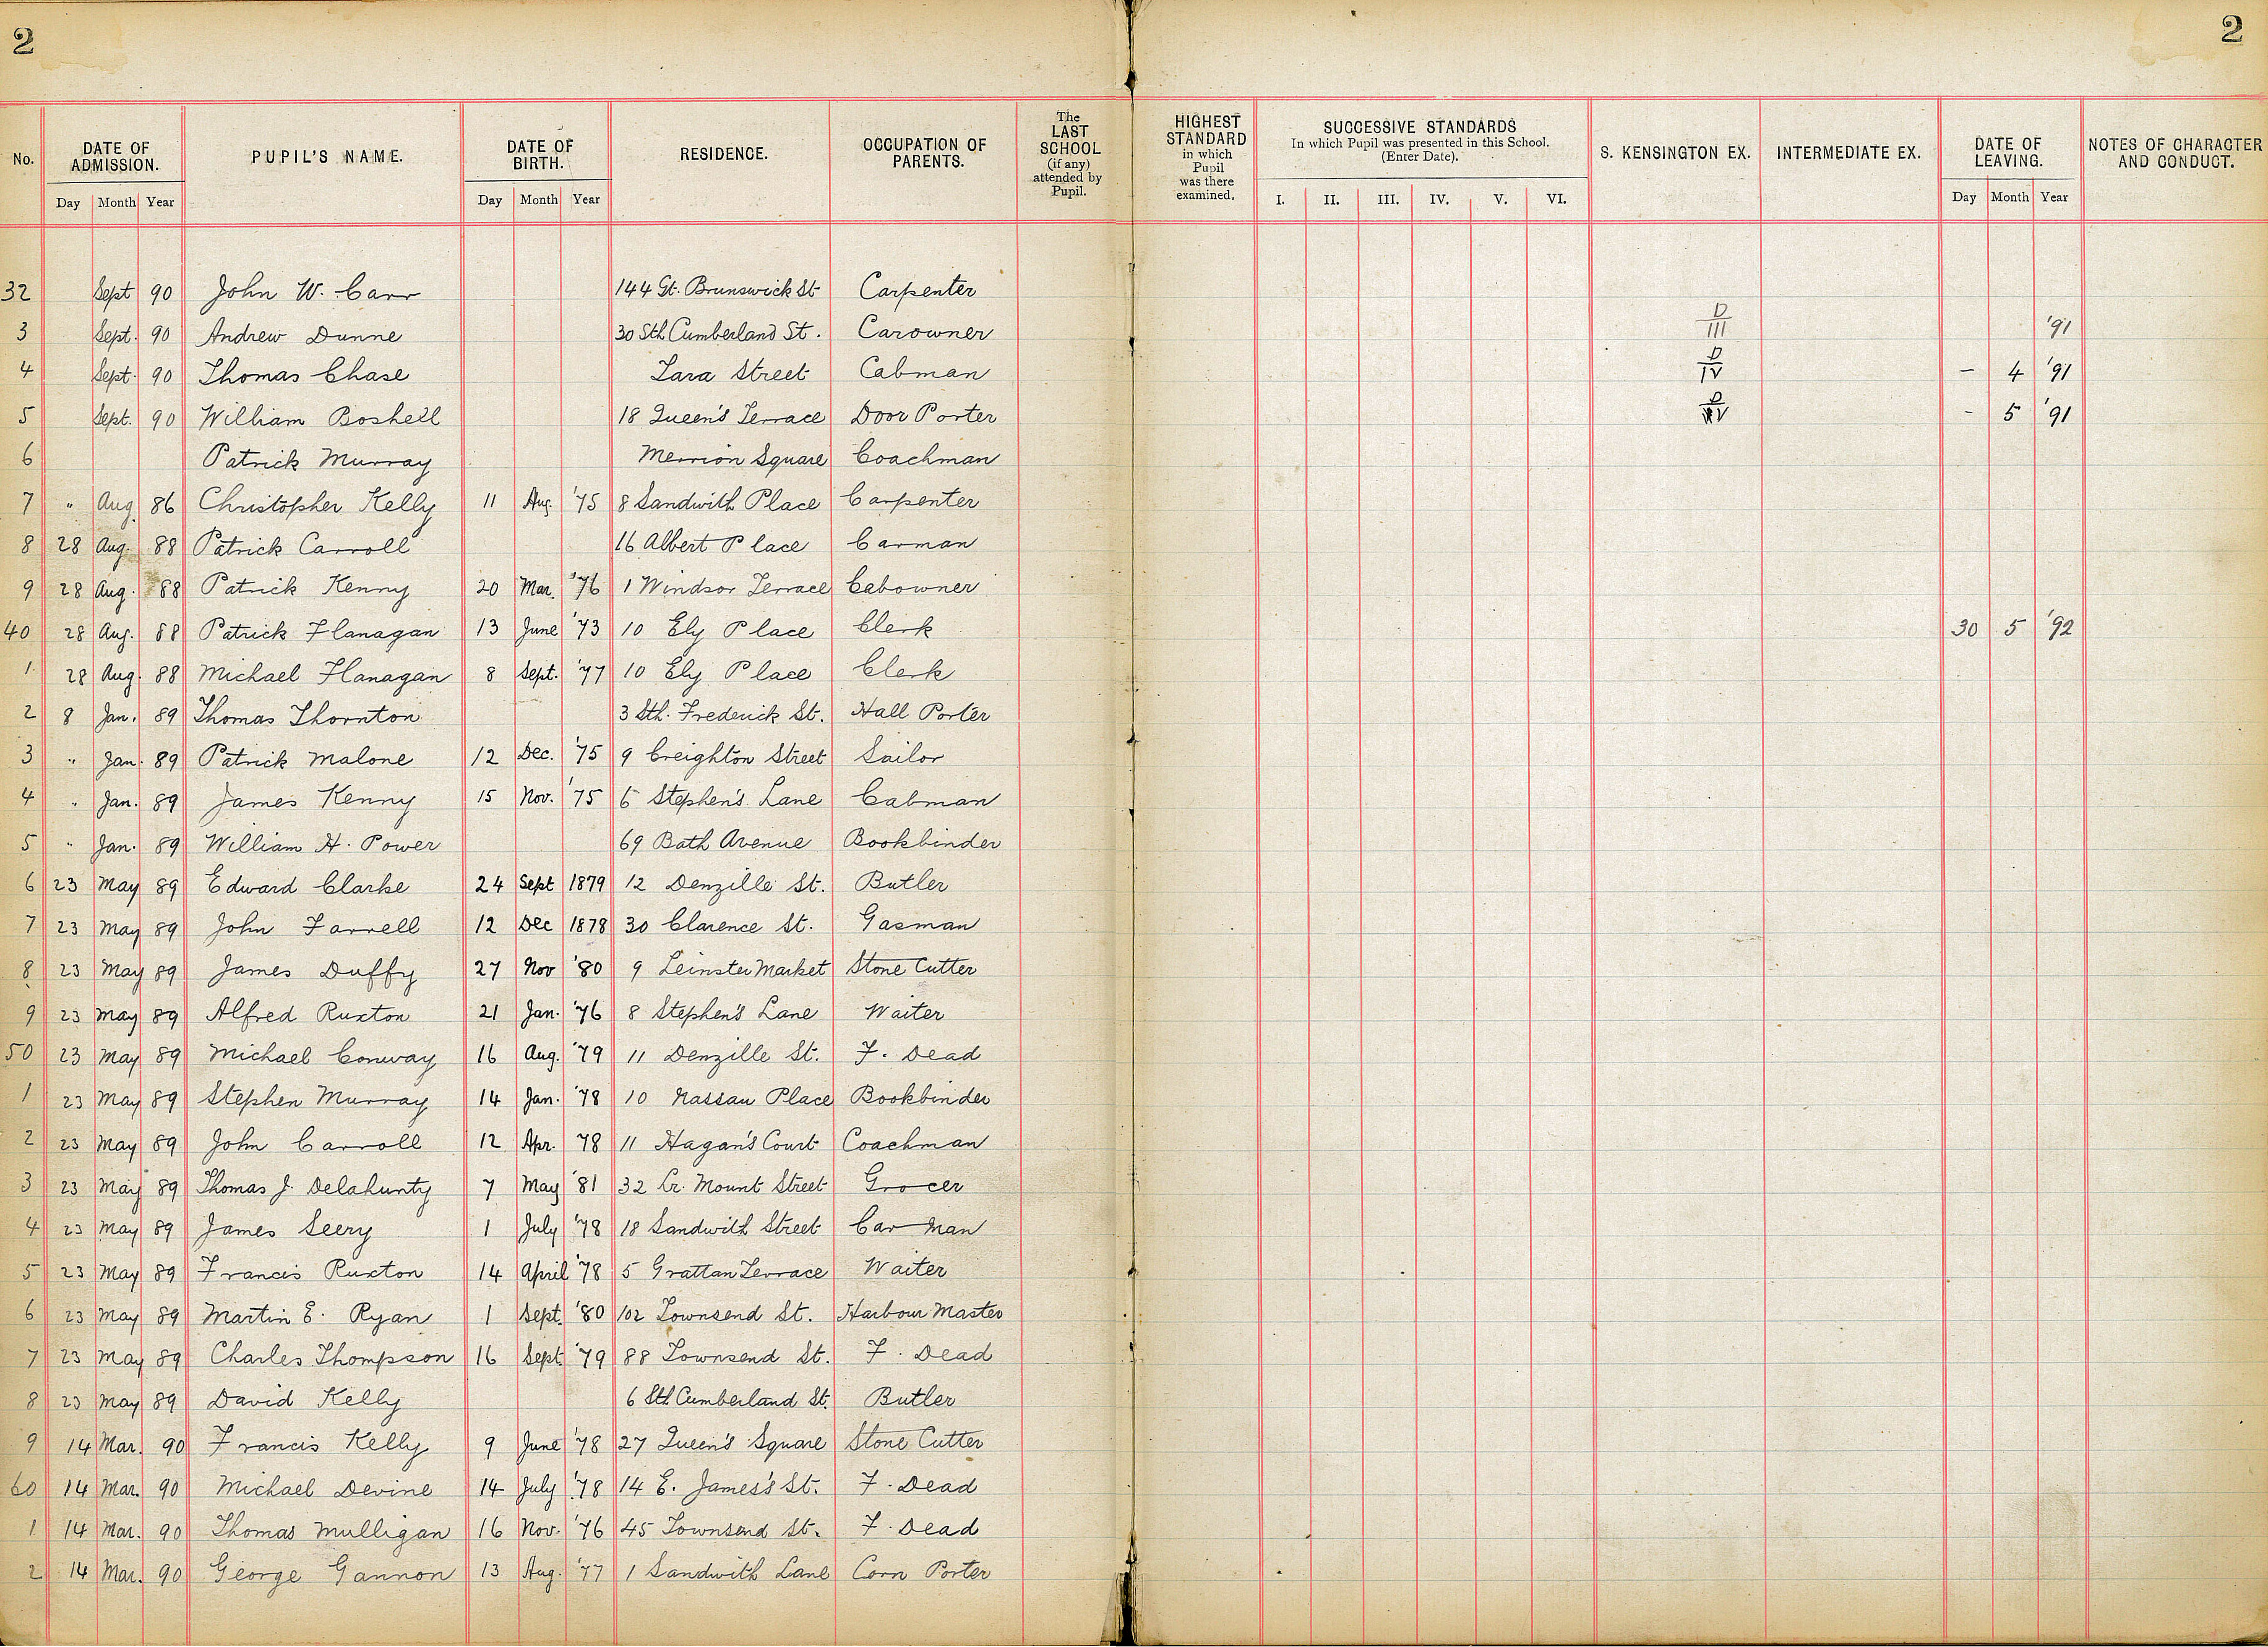 2 2
No. DATE OF ADMISSION. PUPIL'S NAME. DATE OF BIRTH. RESIDENCE. OCCUPATION OF PARENTS. The LAST SCHOOL (if any) attended by Pupil. HIGHEST STANDARD in which Pupil was there examined. SUCCESSIVE STANDARDS In which Pupil was presented in this School. (Enter Date). S. KENSINGTON EX. INTERMEDIATE EX. DATE OF LEAVING. NOTES OF CHARACTER AND CONDUCT.
Day Month Year Day Month Year I. II. III. IV. V. VI. Day Month Year
32 Sept 90 John W. Carr 144 Gt. Brunswick St Carpenter
3 Sept. 90 Andrew Dunne 30 Sth Cumberland St. Carowner D III '91
4 Sept. 90 Thomas Chase Lara Street Cabman D IV – 4 '91
5 Sept. 90 William Boshell 18 Queen's Terrace Door Porter D IV - 5 '91
6 Patrick Murray Merrion Square Coachman
7 " Aug 86 Christopher Kelly 11 Aug. '75 8 Sandwith Place Carpenter
8 28 Aug. 88 Patrick Carroll 16 Albert Place Carman
9 28 Aug. 88 Patrick Kenny 20 Mar. '76 1 Windsor Terrace Cabowner
40 28 Aug. 88 Patrick Flanagan 13 June '73 10 Ely Place Clerk 30 5 '92
1 28 Aug. 88 Michael Flanagan 8 Sept. '77 10 Ely Place Clerk
2 8 Jan. 89 Thomas Thornton 3 Sth. Frederick St. Hall Porter
3 " Jan. 89 Patrick Malone 12 Dec. '75 9 Creighton Street Sailor
4 " Jan. 89 James Kenny 15 Nov. '75 6 Stephen's Lane Cabman
5 " Jan. 89 William H. Power 69 Bath Avenue Bookbinder
6 23 May 89 Edward Clarke 24 Sept 1879 12 Denzille St. Butler
7 23 May 89 John Farrell 12 Dec 1878 30 Clarence St. Gasman
8 23 May 89 James Duffy 27 Nov '80 9 Leinster Market Stone Cutter
9 23 May 89 Alfred Ruxton 21 Jan. '76 8 Stephen's Lane Waiter
50 23 May 89 Michael Conway 16 Aug. '79 11 Denzille St. F. Dead
1 23 May 89 Stephen Murray 14 Jan. '78 10 Nassau Place Bookbinder
2 23 May 89 John Carroll 12 Apr. '78 11 Hagan's Court Coachman
3 23 May 89 Thomas J. Delahunty 7 May '81 32 Lr. Mount Street Grocer
4 23 May 89 James Seery 1 July '78 18 Sandwith Street Car Man
5 23 May 89 Francis Ruxton 14 April '78 5 Grattan Terrace Waiter
6 23 May 89 Martin E. Ryan 1 Sept. '80 102 Townsend St. Harbour Master
7 23 May 89 Charles Thompson 16 Sept '79 88 Townsend St. F. Dead
8 23 May 89 David Kelly 6 Sth Cumberland St. Butler
9 14 Mar. 90 Francis Kelly 9 June '78 27 Queen's Square Stone Cutter
60 14 Mar. 90 Michael Devine 14 July '78 14 E. James's St. F. Dead
1 14 Mar. 90 Thomas Mulligan 16 Nov. '76 45 Townsend St. F. Dead
2 14 Mar. 90 George Gannon 13 Aug. '77 1 Sandwith Lane Corn Porter